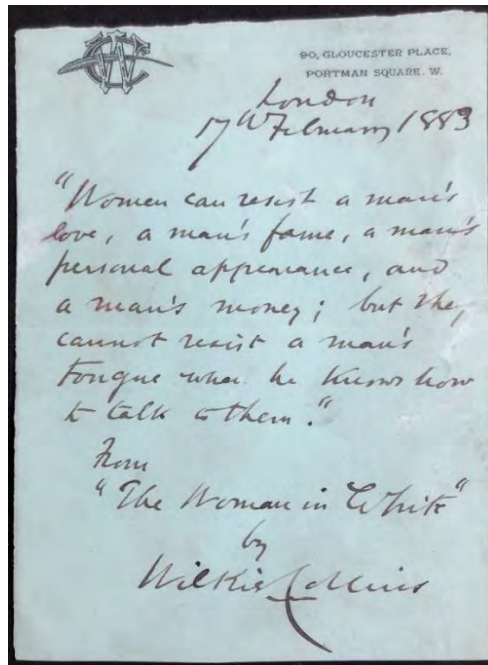 WC
90, GLOUCESTER PLACE,
PORTMAN SQUARE. W.
London
17th February 1883
"Women can resist a man's
love, a man's fame, a man's
personal appearance, and
a man's money; but they
cannot resist a man's
tongue when he knows how
to talk to them."
From
"The Woman in White"
by
Wilkie Collins